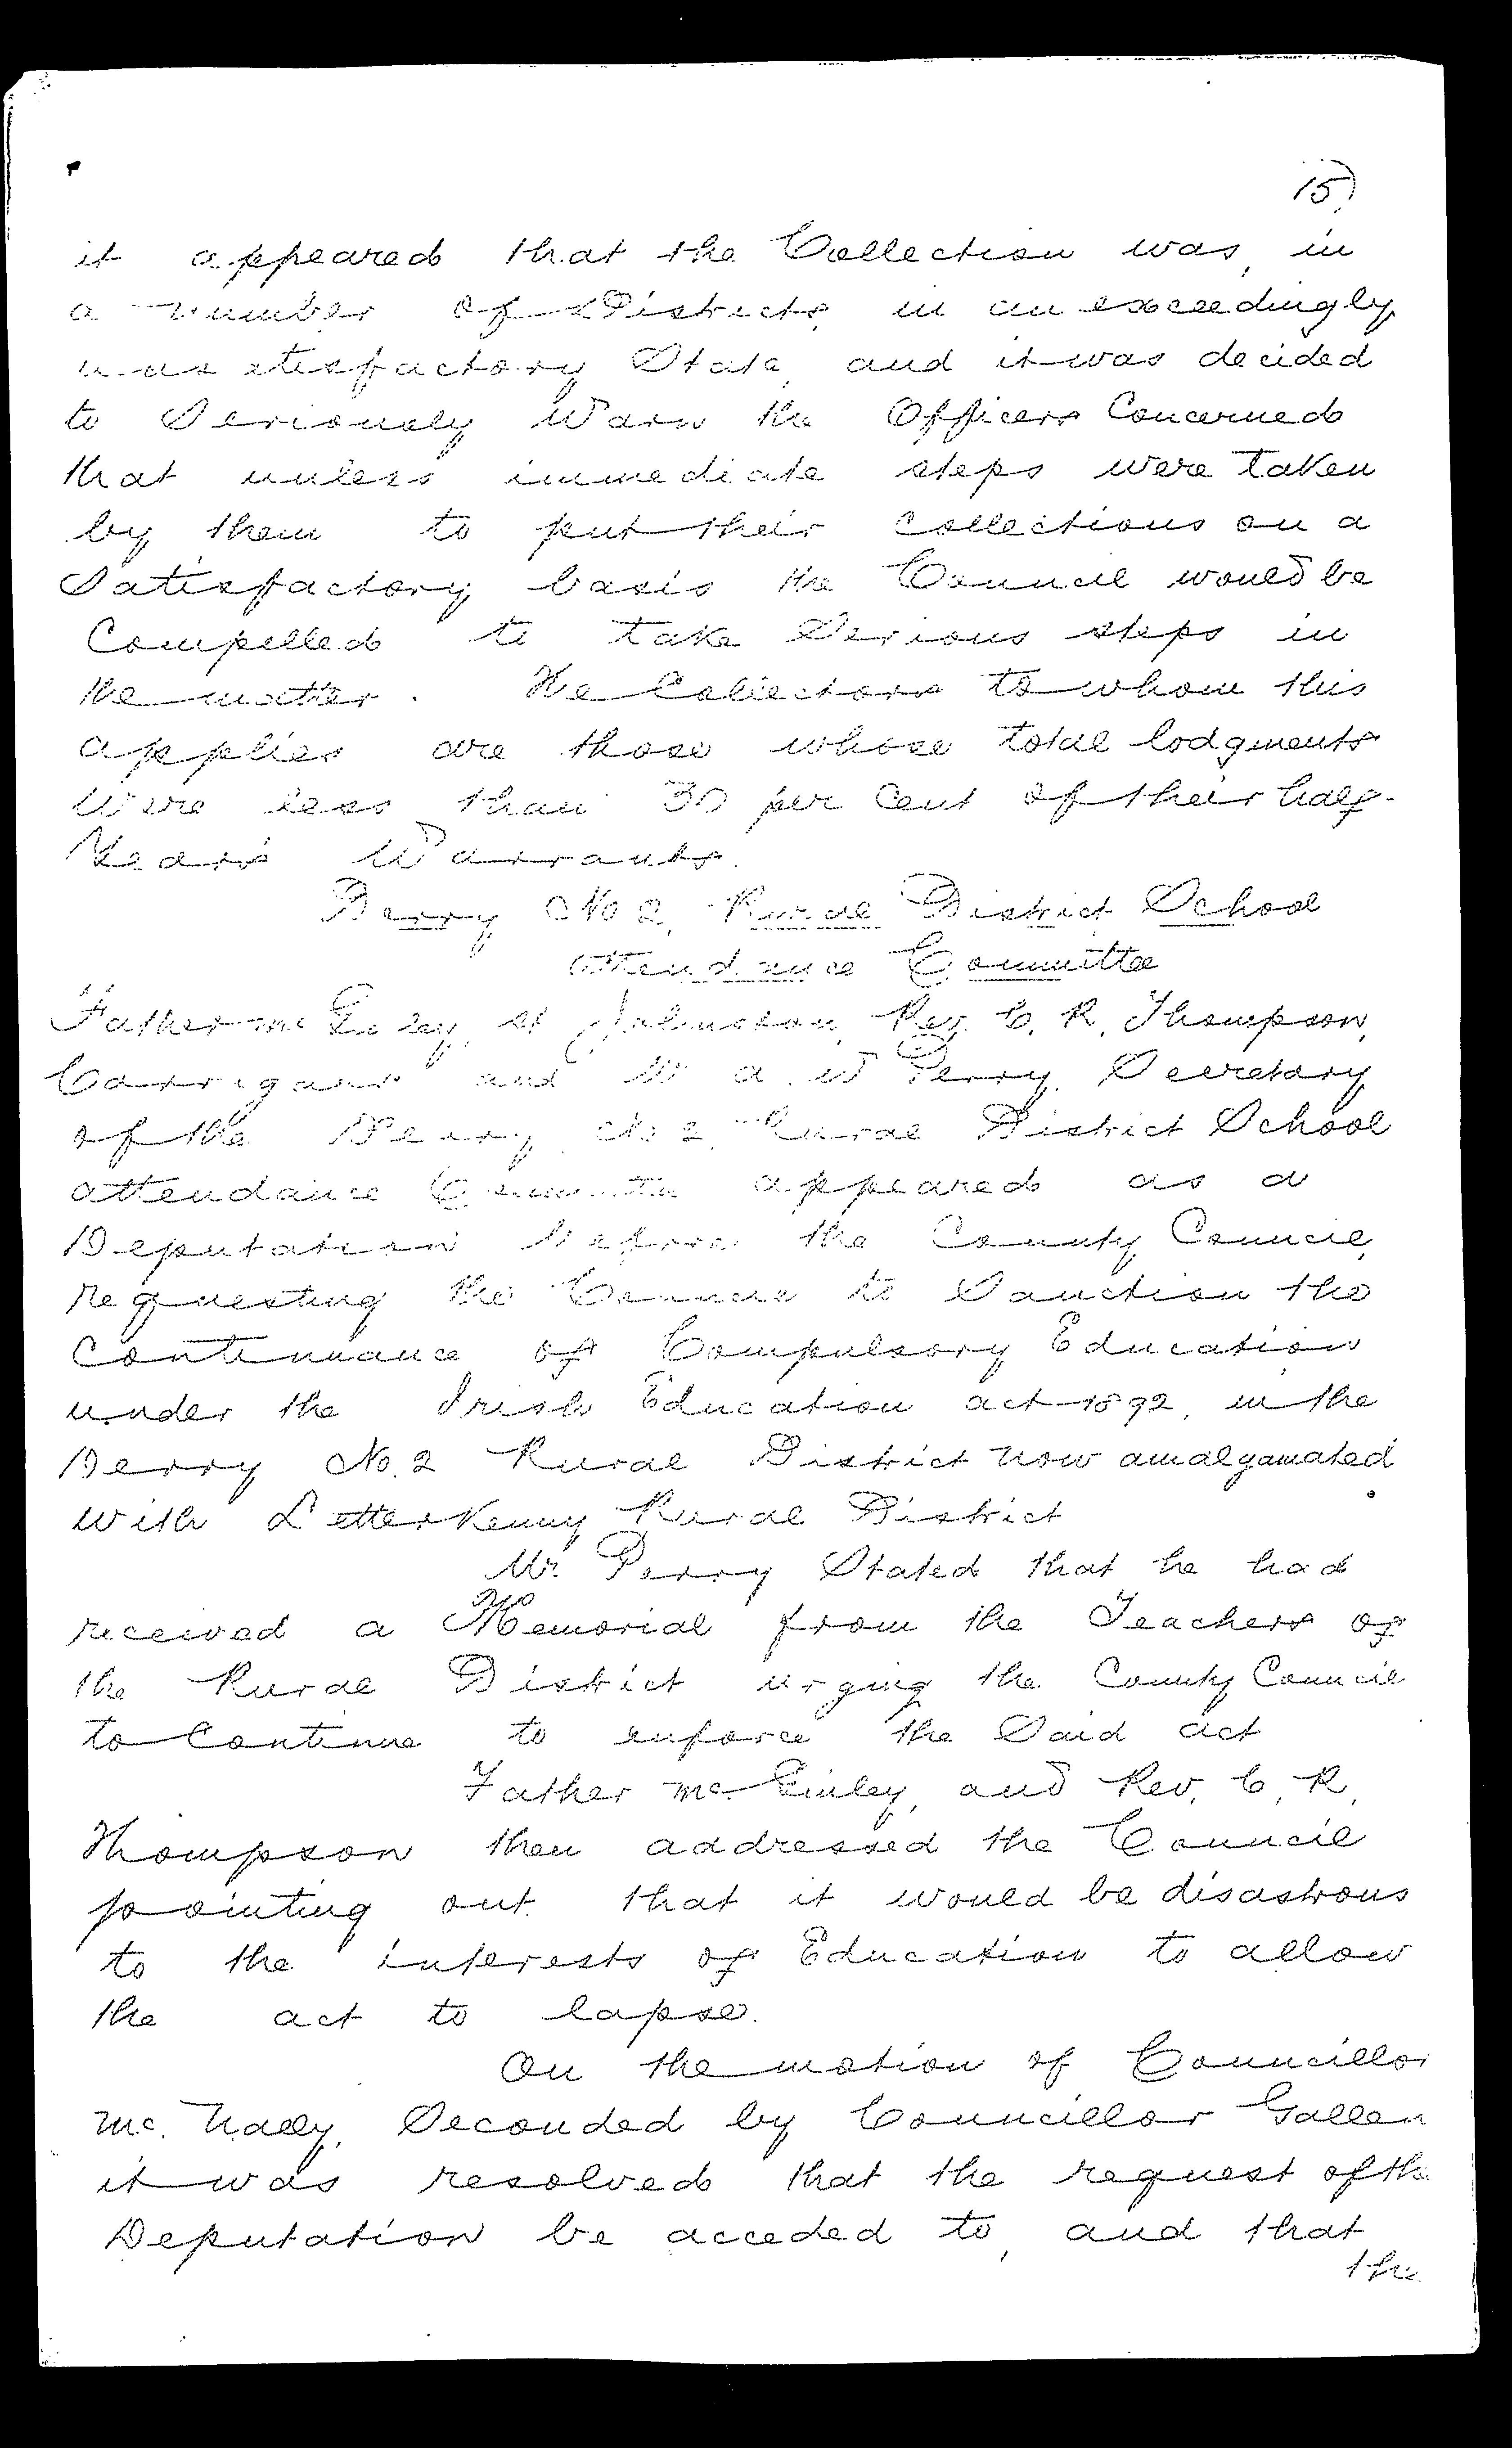 15)
it appeared that the Collection was, in
a number of Districts, in an exceedingly
unsatisfactory State, and it was decided
to Seriously Warn the Officers Concerned
that unless immediate steps were Taken
by them to put their Collections on a
Satisfactory basis the Council would be
Compelled to take Serious steps in
the matter. The Collectors to whom this
applies are those whose total lodgments
Were less than 30 per Cent of their half-
Year's Warrants.
Derry No 2, Rural District School
attendance Committee
Father McGinley, St Johnston, Rev. C. R. Thompson,
Carrigans and Mr A. W Perry, Secretary
of the Derry No 2, Rural District School
attendance Committee appeared as a
Deputation before the County Council,
requesting the Council to Sanction the
Continuance of Compulsory Education
under the Irish Education act 1892, in the
Derry No. 2 Rural District now amalgamated
with Letterkenny Rural District
Mr. Perry Stated that he had
received a Memorial from the Teachers of
the Rural District urging the County Council
to Continue to enforce the Said act
Father McGinley, and Rev. C. R.
Thompson then addressed the Council
pointing out that it would be disastrous
to the interests of Education to allow
the act to lapse.
On the motion of Councillor
Mc. Nally, Seconded by Councillor Gallen
it was resolved that the request of the
Deputation be acceded to, and that
the